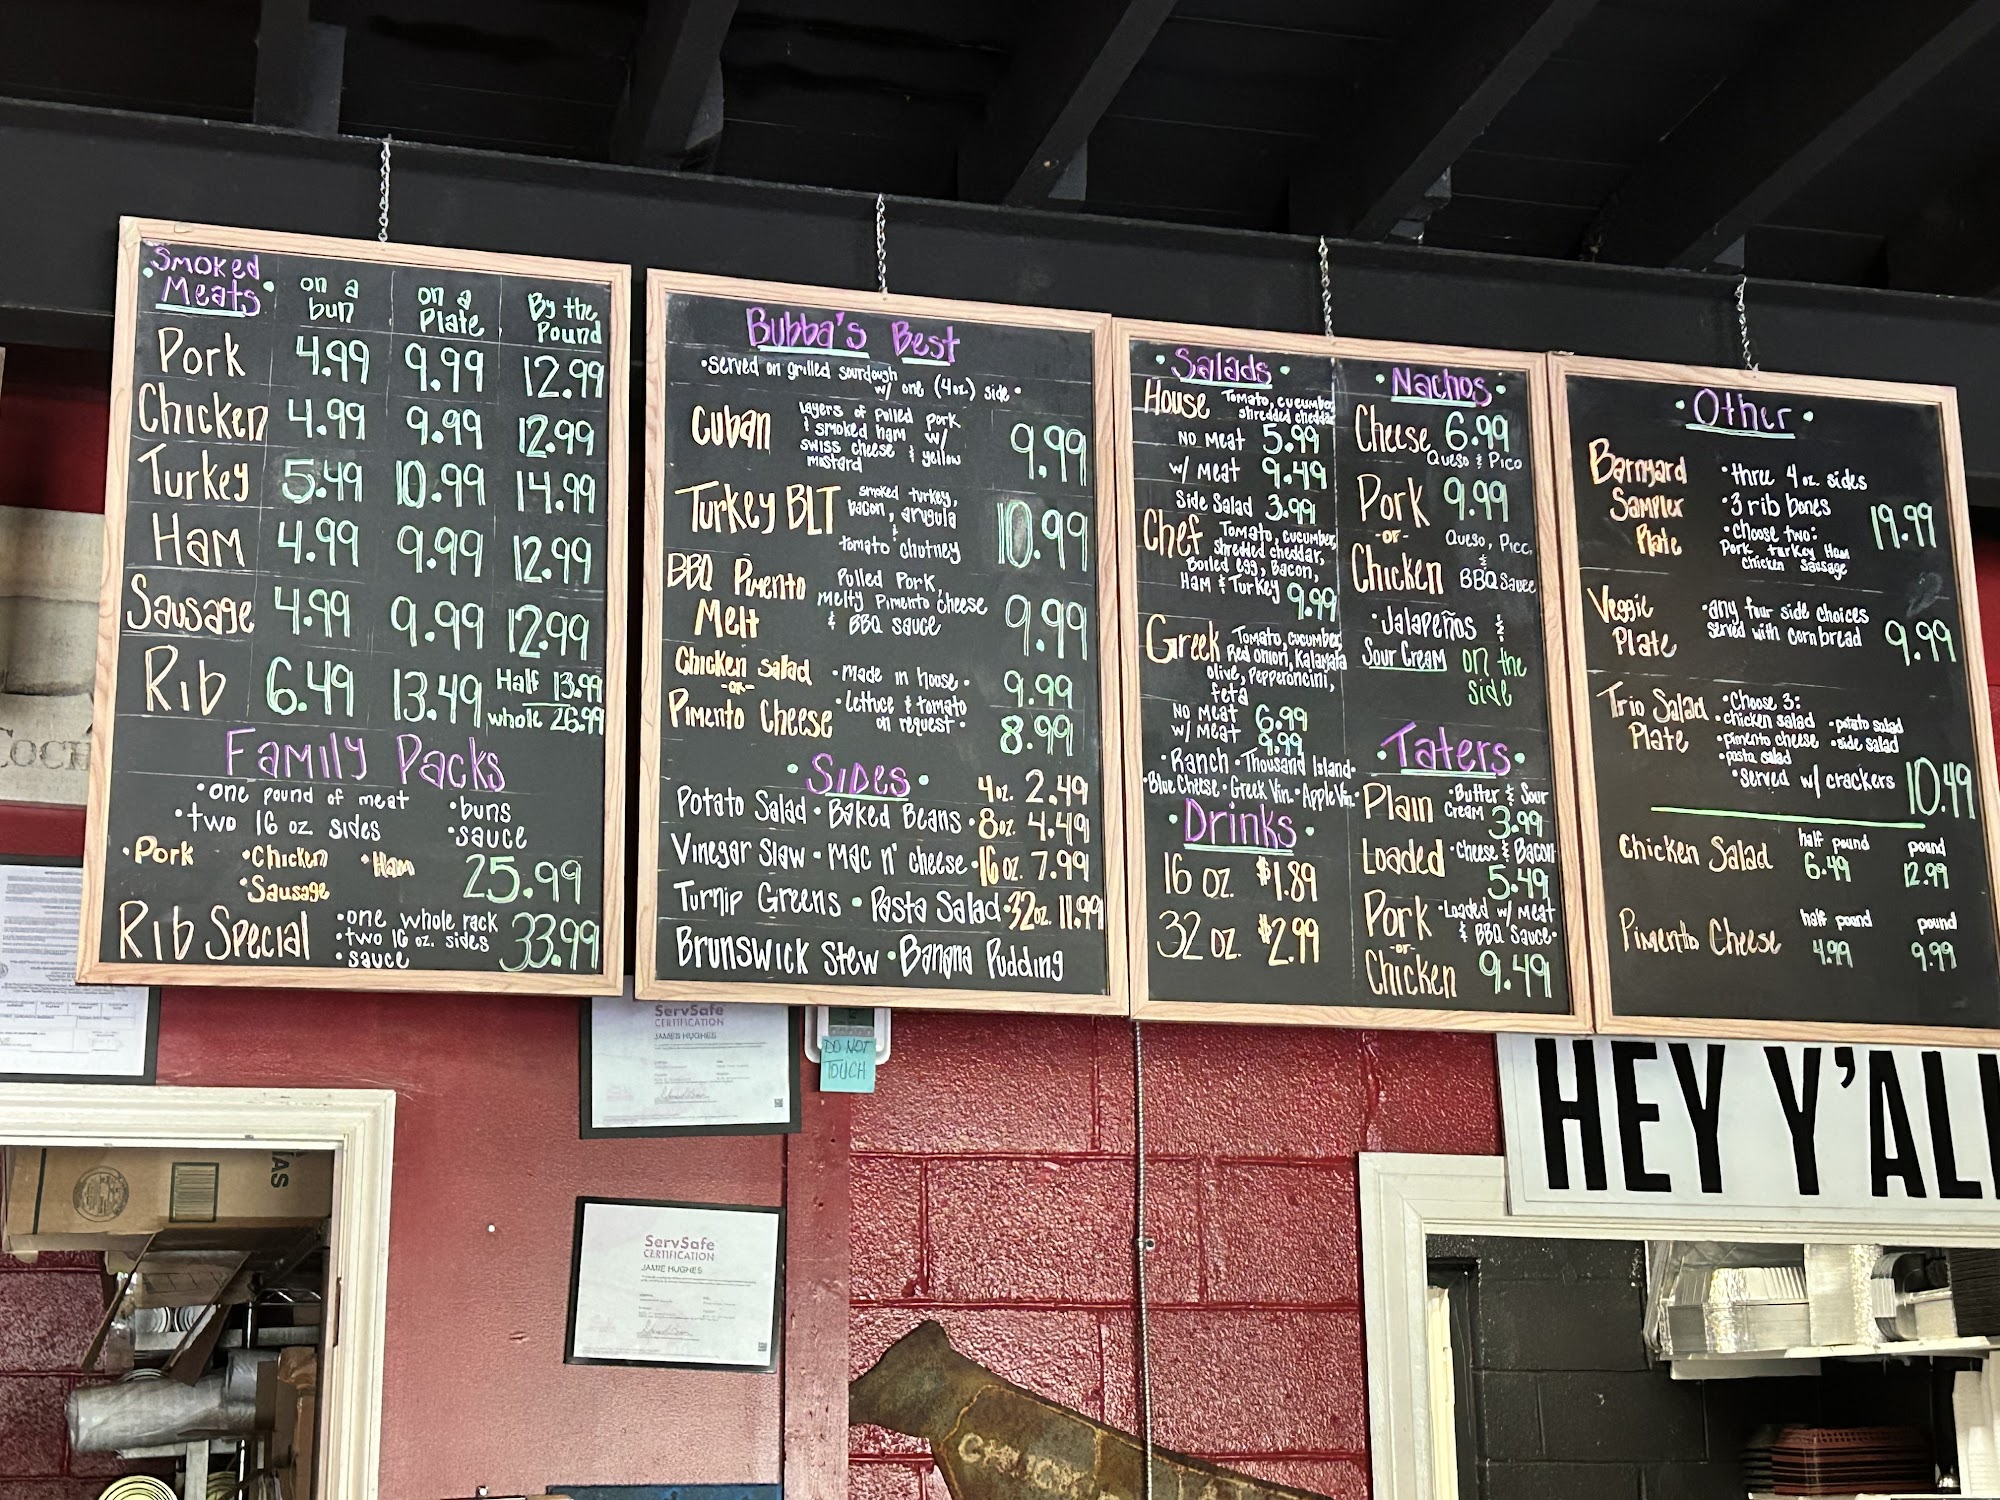 Smoked
Meats
on a
bun
on a
Plate
By the
Pound
Pork 4.99 9.99 12.99
Chicken 4.99 9.99 12.99
Turkey 5.49 10.99 14.99
Ham 4.99 9.99 12.99
Sausage 4.99 9.99 12.99
Rib 6.49 13.49 Half 13.99
whole 26.99
Family Packs
•one pound of meat •buns
•two 16 oz sides •sauce
•Pork •Chicken •Ham 25.99
•Sausage
Rib Special •one whole rack 33.99
•two 16 oz. sides
•sauce
Bubba's Best
•served on grilled sourdough
w/ one (4oz) side•
Cuban layers of Pulled pork
& smoked ham w/
swiss cheese & yellow
mustard
9.99
Turkey BLT smoked turkey,
bacon, arugula
&
tomato chutney
10.99
BBQ Pimento
Melt
Pulled Pork,
melty Pimento cheese
& BBQ sauce
9.99
Chicken salad
-or-
Pimento Cheese
•made in house•
•lettuce & tomato
on request•
9.99
8.99
•Sides•
4oz. 2.49
Potato Salad • Baked Beans • 8oz. 4.49
Vinegar Slaw • Mac n' cheese • 16oz. 7.99
Turnip Greens • Pasta Salad • 32oz. 11.99
Brunswick Stew • Banana Pudding
•Salads•
House Tomato, cucumber,
shredded cheddar
No Meat 5.99
w/ Meat 9.49
Side Salad 3.99
Chef Tomato, cucumber,
shredded cheddar,
Boiled egg, Bacon,
Ham & Turkey 9.99
Greek Tomato, cucumber,
Red onion, Kalamata
olive, pepperoncini,
feta
No Meat 6.99
w/ Meat 9.99
•Ranch •Thousand Island•
•Blue Cheese •Greek Vin. •Apple Vin.•
•Drinks•
16 oz. $1.89
32 oz. $2.99
•Nachos•
Cheese 6.99
Queso & Pico
Pork 9.99
-or-
Chicken
Queso, Pico,
&
BBQ Sauce
•Jalapeños &
Sour Cream on the
side
•Taters•
Plain •Butter & Sour
Cream 3.99
Loaded •Cheese & Bacon
5.49
Pork •Loaded w/ meat
& BBQ Sauce•
-or-
Chicken 9.49
•Other•
Barnyard
Sampler
Plate
•three 4 oz. sides
•3 rib bones
•Choose two:
Pork Turkey Ham
Chicken Sausage
19.99
Veggie
Plate
•any four side choices
served with cornbread
9.99
Trio Salad
Plate
•Choose 3:
•chicken salad •potato salad
•pimento cheese •side salad
•pasta salad
•served w/ crackers
10.49
Chicken Salad half pound pound
6.49 12.99
Pimento Cheese half pound pound
4.99 9.99
ServSafe
CERTIFICATION
JAMES HUGHES
DO NOT
TOUCH
HEY Y'ALL
ServSafe
CERTIFICATION
JAMIE HUGHES